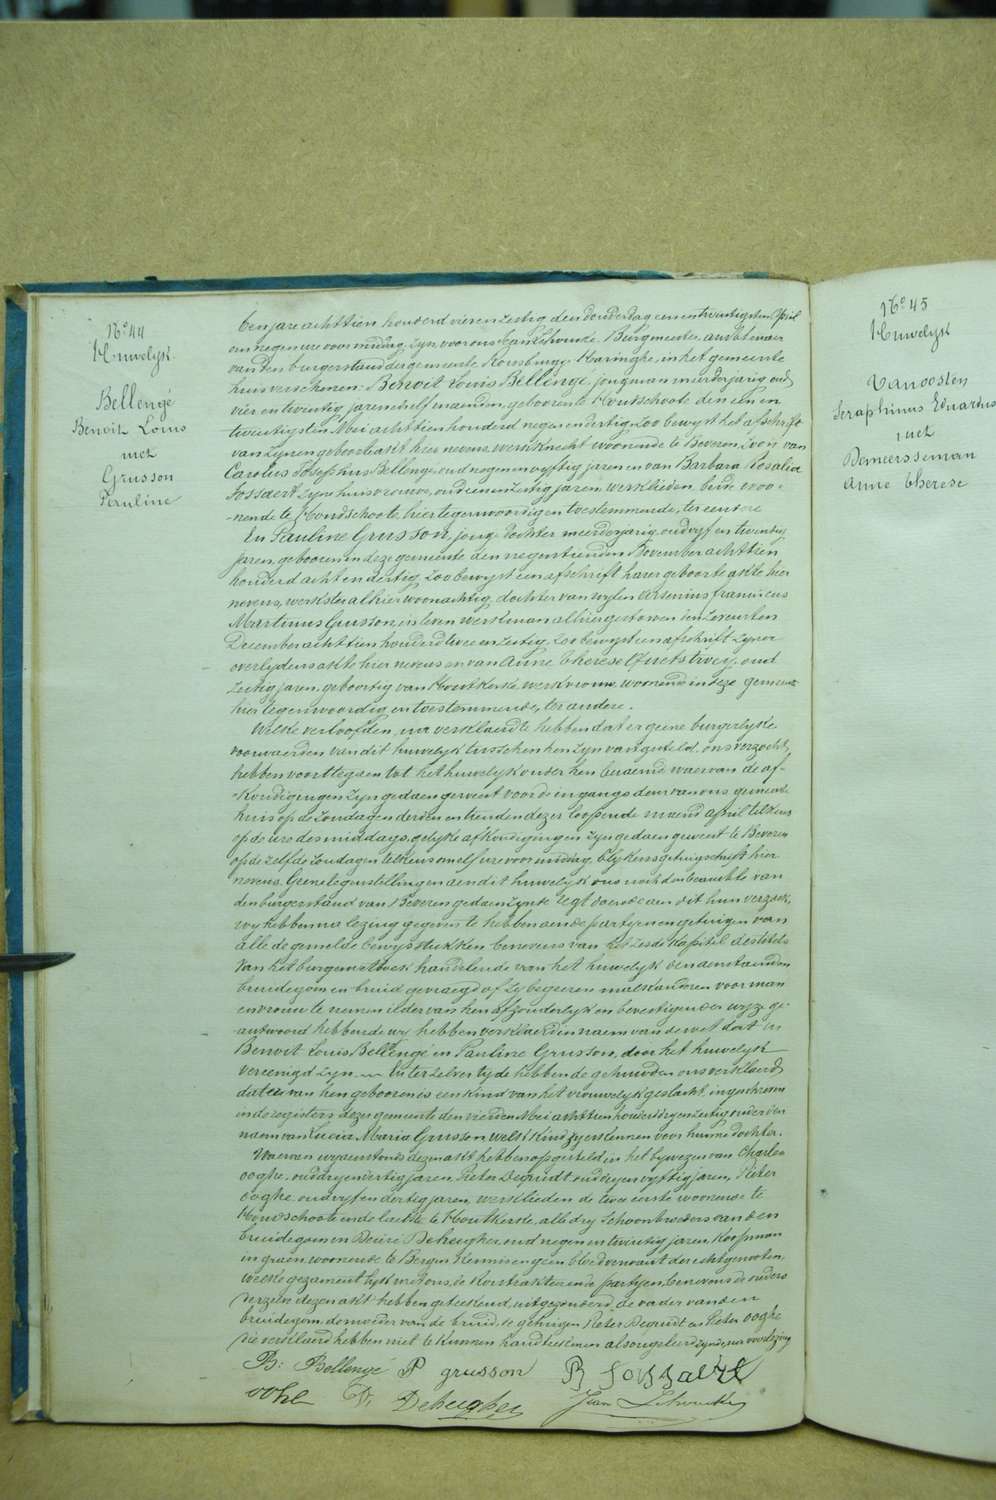 N.o 44
Huwelyk
Bellengé
Benoit Louis
met
Grusson
Pauline
ten jare achttien honderd vier en zestig den donderdag een en twintigsten April
om negen ure voormiddag, zyn voor ons Jan Schoucke Burgmeester, ambtenaer
van den burgerstand der gemeente Rousbrugge Haringhe, in het gemeente
huis verschenen: Benoit Louis Bellengé, jongman meerderjarig oud
vier en twintig jaren elf maenden, geboren te Hontschoote den een en
twintigsten Mei achttien honderd negen en dertig, zoo bewyst het afschrift
van zynen geboorte akt hier nevens, werkknecht woonende te Beveren, zoon van
Carolus Josephus Bellengé, oud negen en vyftig jaren en van Barbara Rosalia
Fossaert zyne huisvrouw, oud een en zestig jaren, werklieden, beide woo-
-nende te Hondschoote, hier tegenwoordig en toestemmende, ter eenre
En Pauline Grusson, jonge dochter meerderjarig, oud vyf en twintig
jaren, geboren in deze gemeente den negentienden November achttien
honderd acht en dertig, zoo bewyst een afschrift harer geboorte akte hier
nevens, werkster alhier woonachtig, dochter van wylen Arsenius franciscus
Martinus Grusson, in leven werkman alhier gestorven den zevensten
December achttien honderd twee en zestig, zoo bewyst een afschrift zyner
overlydens akte hier nevens en van Anne Therese Quetstroey, oud
zestig jaren, geboortig van Houtkerke, werkvrouw, woonende in deze gemeente
hier tegenwoordig en toestemmende, ter andere.
Welke verloofden, na verklaerd te hebben dat er geene burgerlyke
voorwaerden van dit huwelyk tusschen hen zyn vastgesteld, ons verzocht
hebben voort te gaen tot het huwelyk onder hen beraemd waervan de af-
-kondigingen zyn gedaen geweest voor de ingangs deur van ons gemeente
huis op de zondagen derden en tienden dezer loopende maend april telkens
op de ure des middags, gelyke afkondigingen zyn gedaen geweest te Beveren
op de zelfde zondagen telkens om elf ure voormiddag, blykens getuigschrift hier
nevens. Geene tegenstellingen aen dit huwelyk ons noch den beambte van
den burgerstand van Beveren gedaen zynde regt doende aen dit hun verzoek,
wy hebben na lezing gegeven te hebben aen de partyen en getuigen van
alle de gemelde bewysstukken benevens van het zesde Kapittel des titels
van het burger wetboek handelende van het huwelyk den aenstaenden
bruidegom en bruid gevraegd of zy begeeren malkanderen voor man
en vrouw te nemen ilder van hen afzonderlyk en bevestigender wyze ge-
antwoord hebbende wy hebben verklaerd in naem van de wet dat
Benoit Louis Bellengé en Pauline Grusson, door het huwelyk
vereenigd zyn. In ter zelver tyde hebben de gehuwden ons verklaerd
dat er van hen geboren is een kind van het vrouwelyk geslacht, ingeschreven
in de registers dezer gemeente den vierden Mei achttien honderd een zestig onder den
naem van Lucia Maria Grusson, welk kind zy erkennen voor hunne dochter.
Waervan wy aenstonds dezen akt hebben opgesteld in het bywezen van Charles
ooghe, oud dry en dertig jaren, Pieter Dequidt oud dry en vyftig jaren, Pieter
ooghe, oud vyf en dertig jaren, werklieden de twee eerste woonende te
Hondschoote ende laetste te Houtkerke, alle dry schoonbroeders van den
bruidegom en Desiré Deheugher, oud negen en twintig jaren, koopman
in graen, woonende te Bergen, kennis en geen bloedverwant der echtgenooten,
welke gezamentlyk met ons, de kontrakteerende partyen, benevens de ouders
derzelve dezen akt hebben geteekend, uitgezonderd, de vader van den
bruidegom, de moeder van de bruid, te getuigen Pieter Dequidt en Pieter ooghe
die verklaerd hebben niet te kunnen handteekenen alsoo geleerd zynde, na voorlezing
B: Bellengé P grusson B fossaert
oohe D, Deheugher Jean Schoucke
N.o 45
Huwelyk
Vanoosten
Seraphinus Eduardus
met
Demeersseman
Anne Therese